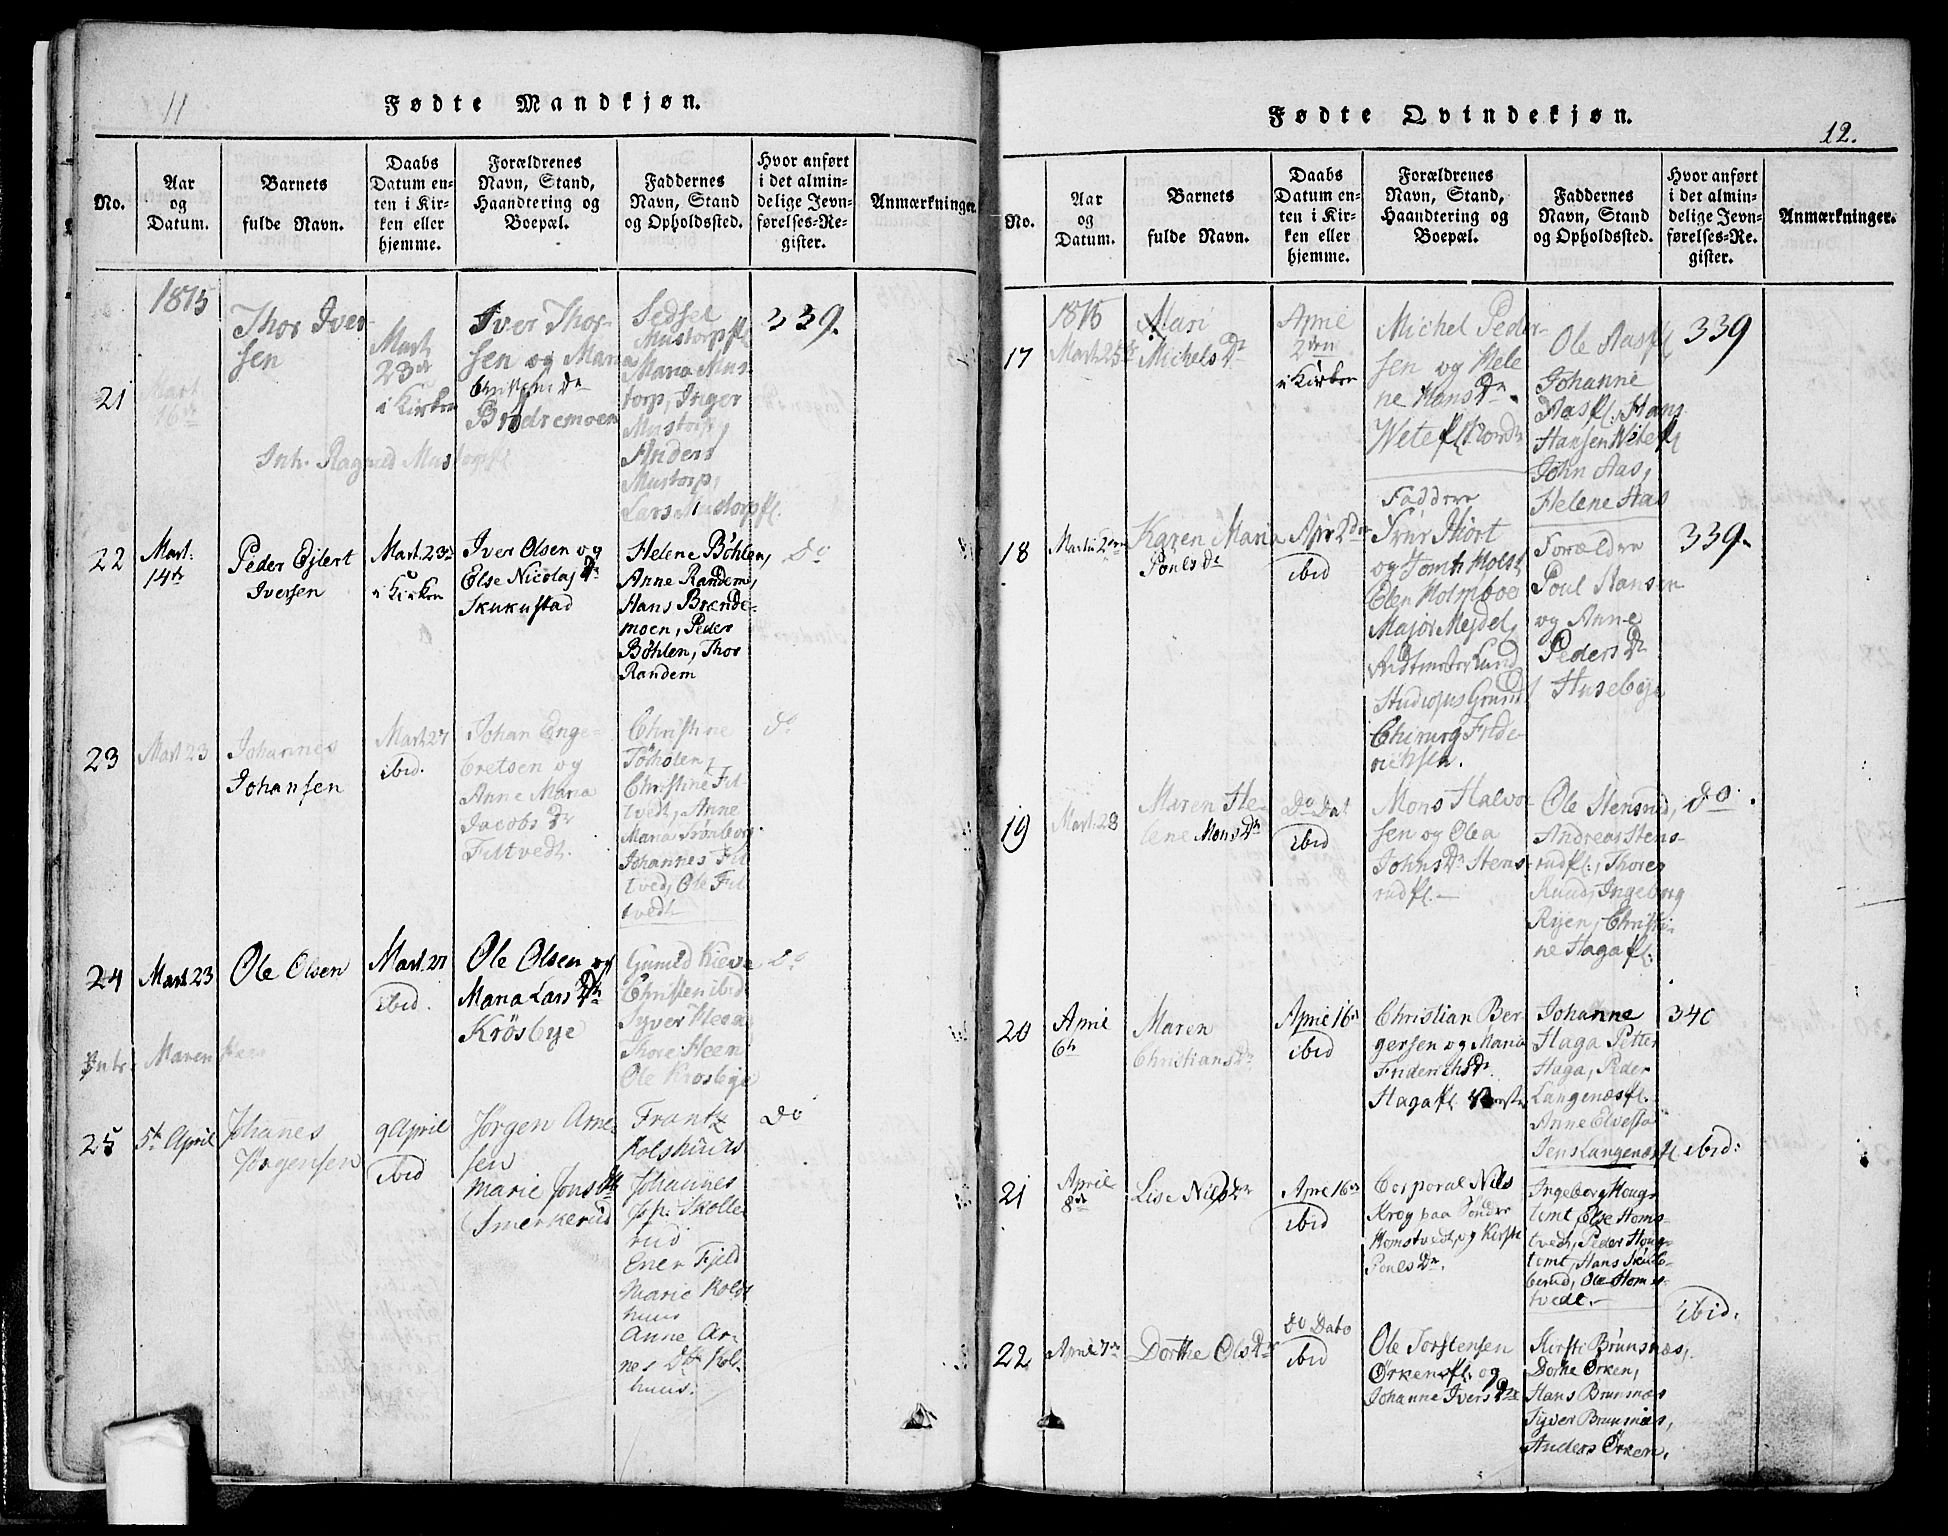 11
Fødte Mandkjøn.
No.
Aar
og
Datum.
Barnets
fulde Navn.
Daabs
Datum en-
ten i Kir-
ken eller
hjemme.
Forældrenes
Navn, Stand,
Haandtering og
Boepæl.
Faddernes
Navn, Stand
og Opholdssted.
Hvor anført
i det almin-
delige Jevn-
førelses-Re-
gister.
Anmærkninger.
1815
21
Mart
16de
Thor Iver-
sen
Mart
23de
i Kirken
Iver Thor-
sen og Maria
Christens Dn
Brødremoen
Sedsel
Mustorpfl
Maria Mus-
torp, Inger
Mustorp,
Anders
Mustorp,
Lars Mustorpfl.
339.
Inh. Ragnild Mustorpfl
22
Mart.
14de
Peder Ejlert
Iversen
Mart. 23de
i Kirken
Iver Olsen og
Else Nicolaj Dn
Skukustad
Helene Böhlen,
Anne Randem,
Hans Brænde-
moen, Peder
Böhlen, Thor
Randem
Do
23
Mart 23
Johannes
Johansen
Mart. 27
ibid.
Johan Enge-
bretsen og
Anne Maria
Jacobs Dr
Filtvedt.
Christine
Törholen,
Christine Fil
tvedt, Anne
Maria Trönborg.
Johannes Fil
tved, Ole Fil
tvedt
do
24
Mart 23
Ole Olsen
Mart. 27
ibid.
Ole Olsen og
Maria Lars Dn
Krösbye
Gunild Kieva
Christen ibid
Syver Heen
Thore Heen
Ole Krosbye
Do
Intr: Maren
25
5te April
Johanes
Jørgensen
9 April
ibid
Jørgen Arne-
sen
Marie Jons Dtr
Smerkerud
Frantz
Kolshuus
Johannes
Jsp. Skolle
rud
Ener Fjeld
Marie Kols
huus
Anne Ar-
nes Dtr Kol-
huus.
Do
12.
Fødte Qvindekjøn.
No.
Aar
og
Datum.
Barnets
fulde Navn.
Daabs
Datum en-
ten i Kir-
ken eller
hjemme.
Forældrenes
Navn, Stand,
Haandtering og
Boepæl.
Faddernes
Navn, Stand
og Opholdssted.
Hvor anført
i det almin-
delige Jevn-
førelses-Re-
gister.
Anmærkninger.
1815
17
Mart. 25de
Mari
Michels Dr
April
2den
i Kirken
Michel Peder-
sen og Hele
ne Hans Dn.
Wetefl
Ole Aasfl
Johanne
Aasfl. Hans
Hansen Wetefl
John Aas,
Helene Aas
339
18
Martii 2den
Karen Maria
Pouls Dr
Apr 2den
ibid
Faddere
Hiort
og Jomfr Holst
Elen Holmboe
Major Mejdel,
Ridtmester Lund
Studiosus Grund
Chirurg Fride-
richsen.
Forældre
Poul Hansen
og Anne
Peders Dr
Husebye
339.
19
Mart. 28
Maren He-
lene Mons Dn
Do Dat
ibid
Mons Halvor
sen og Olea
Johns Dr Stens-
rudfl.
Ole Stensrud,
Andreas Stens-
rudfl., Thorer
Ruud, Ingeborg
Ryen, Christi-
ne Hagafl.
do.
20
April
6te
Maren
Christians Dr
April 16de
ibid
Christian Ber-
gersen og Maria
Friderichs Dr.
Hagafl.
Johanne
Haga Petter
Haga, Peder
Langenæsfl.
Anne Elvestø
Jens Langenæsfl
340
21
April
8de
Lise Nils Dr
April 16de
ibid
Corporal Nils
Krog paa Søndre
Homstvedt, og Kirsti
Pouls Dr.
Ingeborg Houg-
tomt, Else Homs-
tvedt, Peder Houg-
tomt, Hans Skulle-
berud, Ole Homs-
tvedt.
ibid:
22
April 7de
Dorthe Ols Dr
Do Dato
ibid
Ole Torstensen
Ørkensfl. og
Johanne Ivers Dr
Kirsti Brunsnæs,
Dorthe Ørken,
Hans Brunsnæs
Syver Brunsnæs,
Anders Ørken.
ibid.